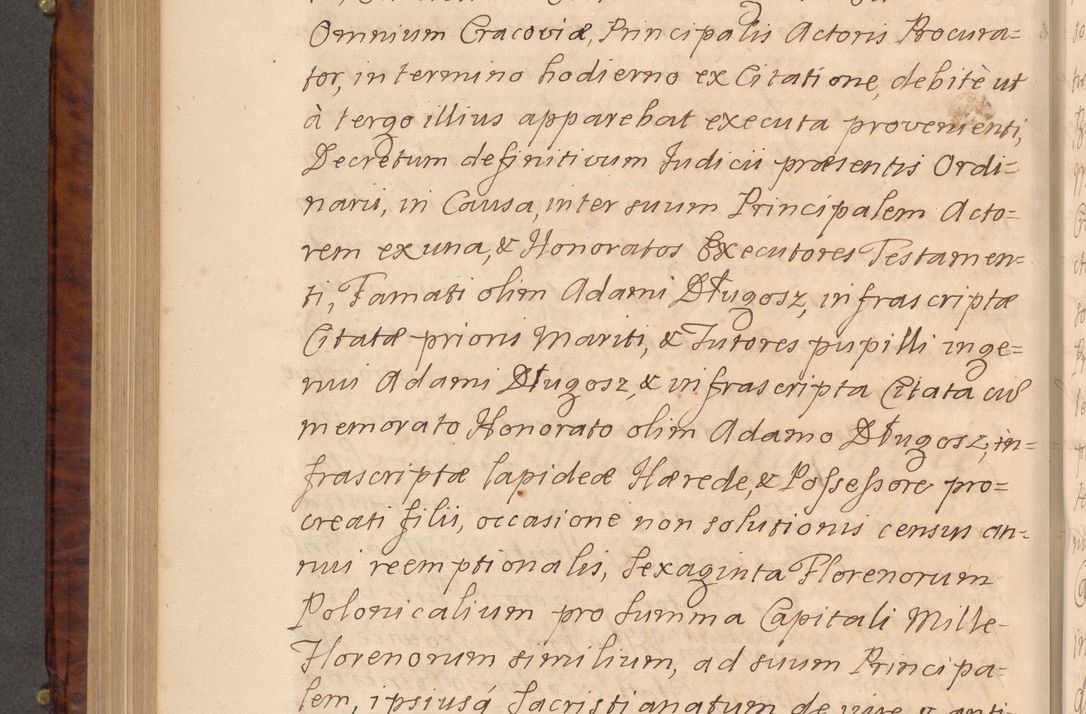 Omnium Cracoviæ, Principalis Actoris Procura=
tor, in termino hodierno ex Citatione, debitè ut
à tergo illius apparebat executa provenienti,
Decretum definitivum Iudicii præsentis Ordi=
narii, in Causa, inter suum Principalem Acto=
rem ex una, & Honoratos Executores Testamen=
ti, Famati olim Adami Długosz, infrascriptæ
Citatæ prioris Mariti, & Tutores pupilli inge=
nui Adami Długosz, & infrascripta Citata cũ
memorato Honorato olim Adamo Długosz, in=
frascriptæ lapideæ Hærede, & Possessore pro=
creati filii, occasione non solutionis census an=
nui reemptionalis, Sexaginta Florenorum
Polonicalium pro summa Capitali Mille
Florenorum similium, ad suum Principa=
lem, ipsiusq́ Sacristianatum de jure & anti=